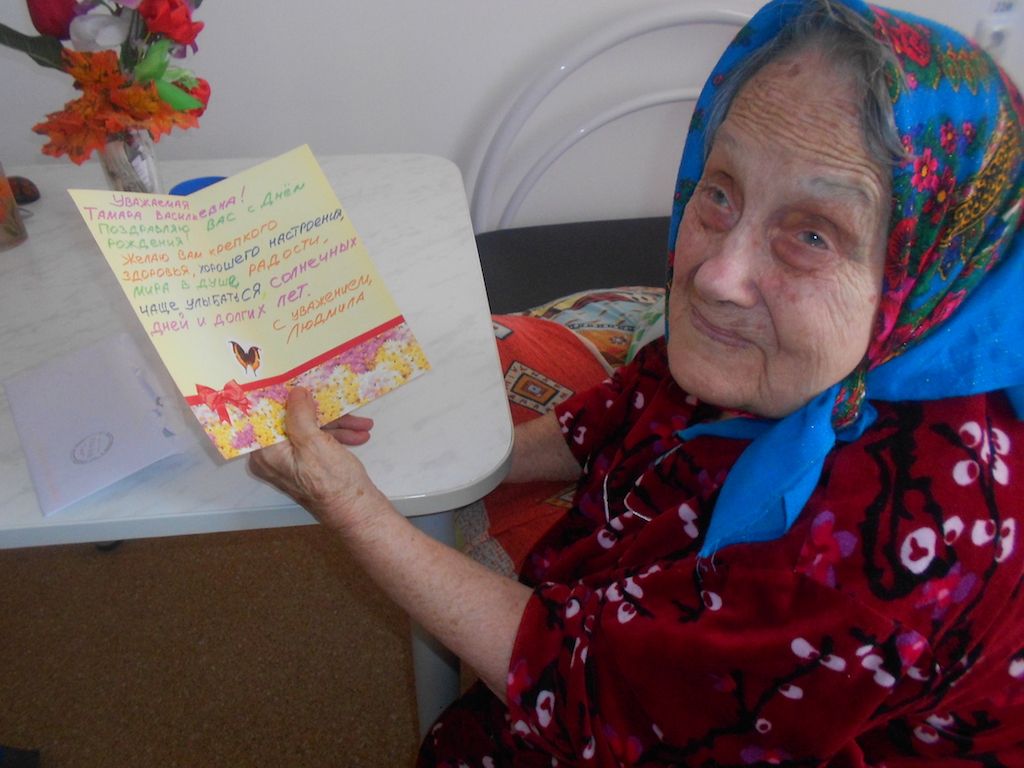 Уважаемая
Тамара Васильевна!
Поздравляю Вас с Днём
рождения!
Желаю Вам крепкого
здоровья, хорошего настроения,
мира в душе, радости,
чаще улыбаться, солнечных
дней и долгих лет.
С уважением,
Людмила